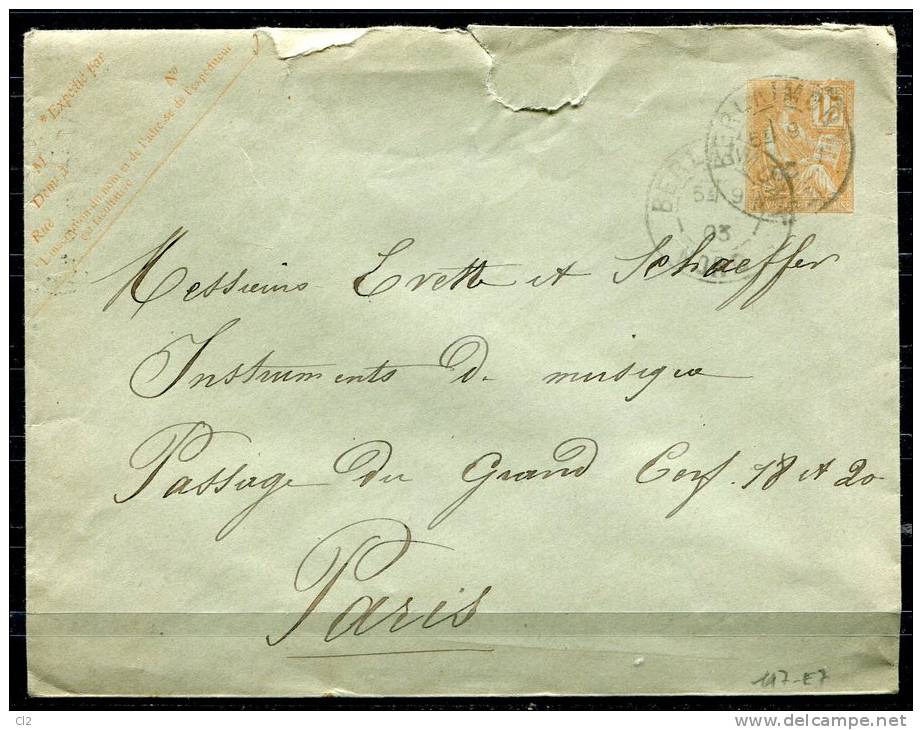 * Expédié par
N°
M
Demt à
Rue
* L'inscription du nom et de l'adresse de l'expéditeur
est facultative
15
BERLAIMONT
5E 9
BERLAIMONT
5E 9
03
NORD
Messieurs Evette et Schaeffer
Instruments de musique
Passage du Grand Cerf. 18 et 20
Paris
117-E7
Cl2
www.delcampe.net